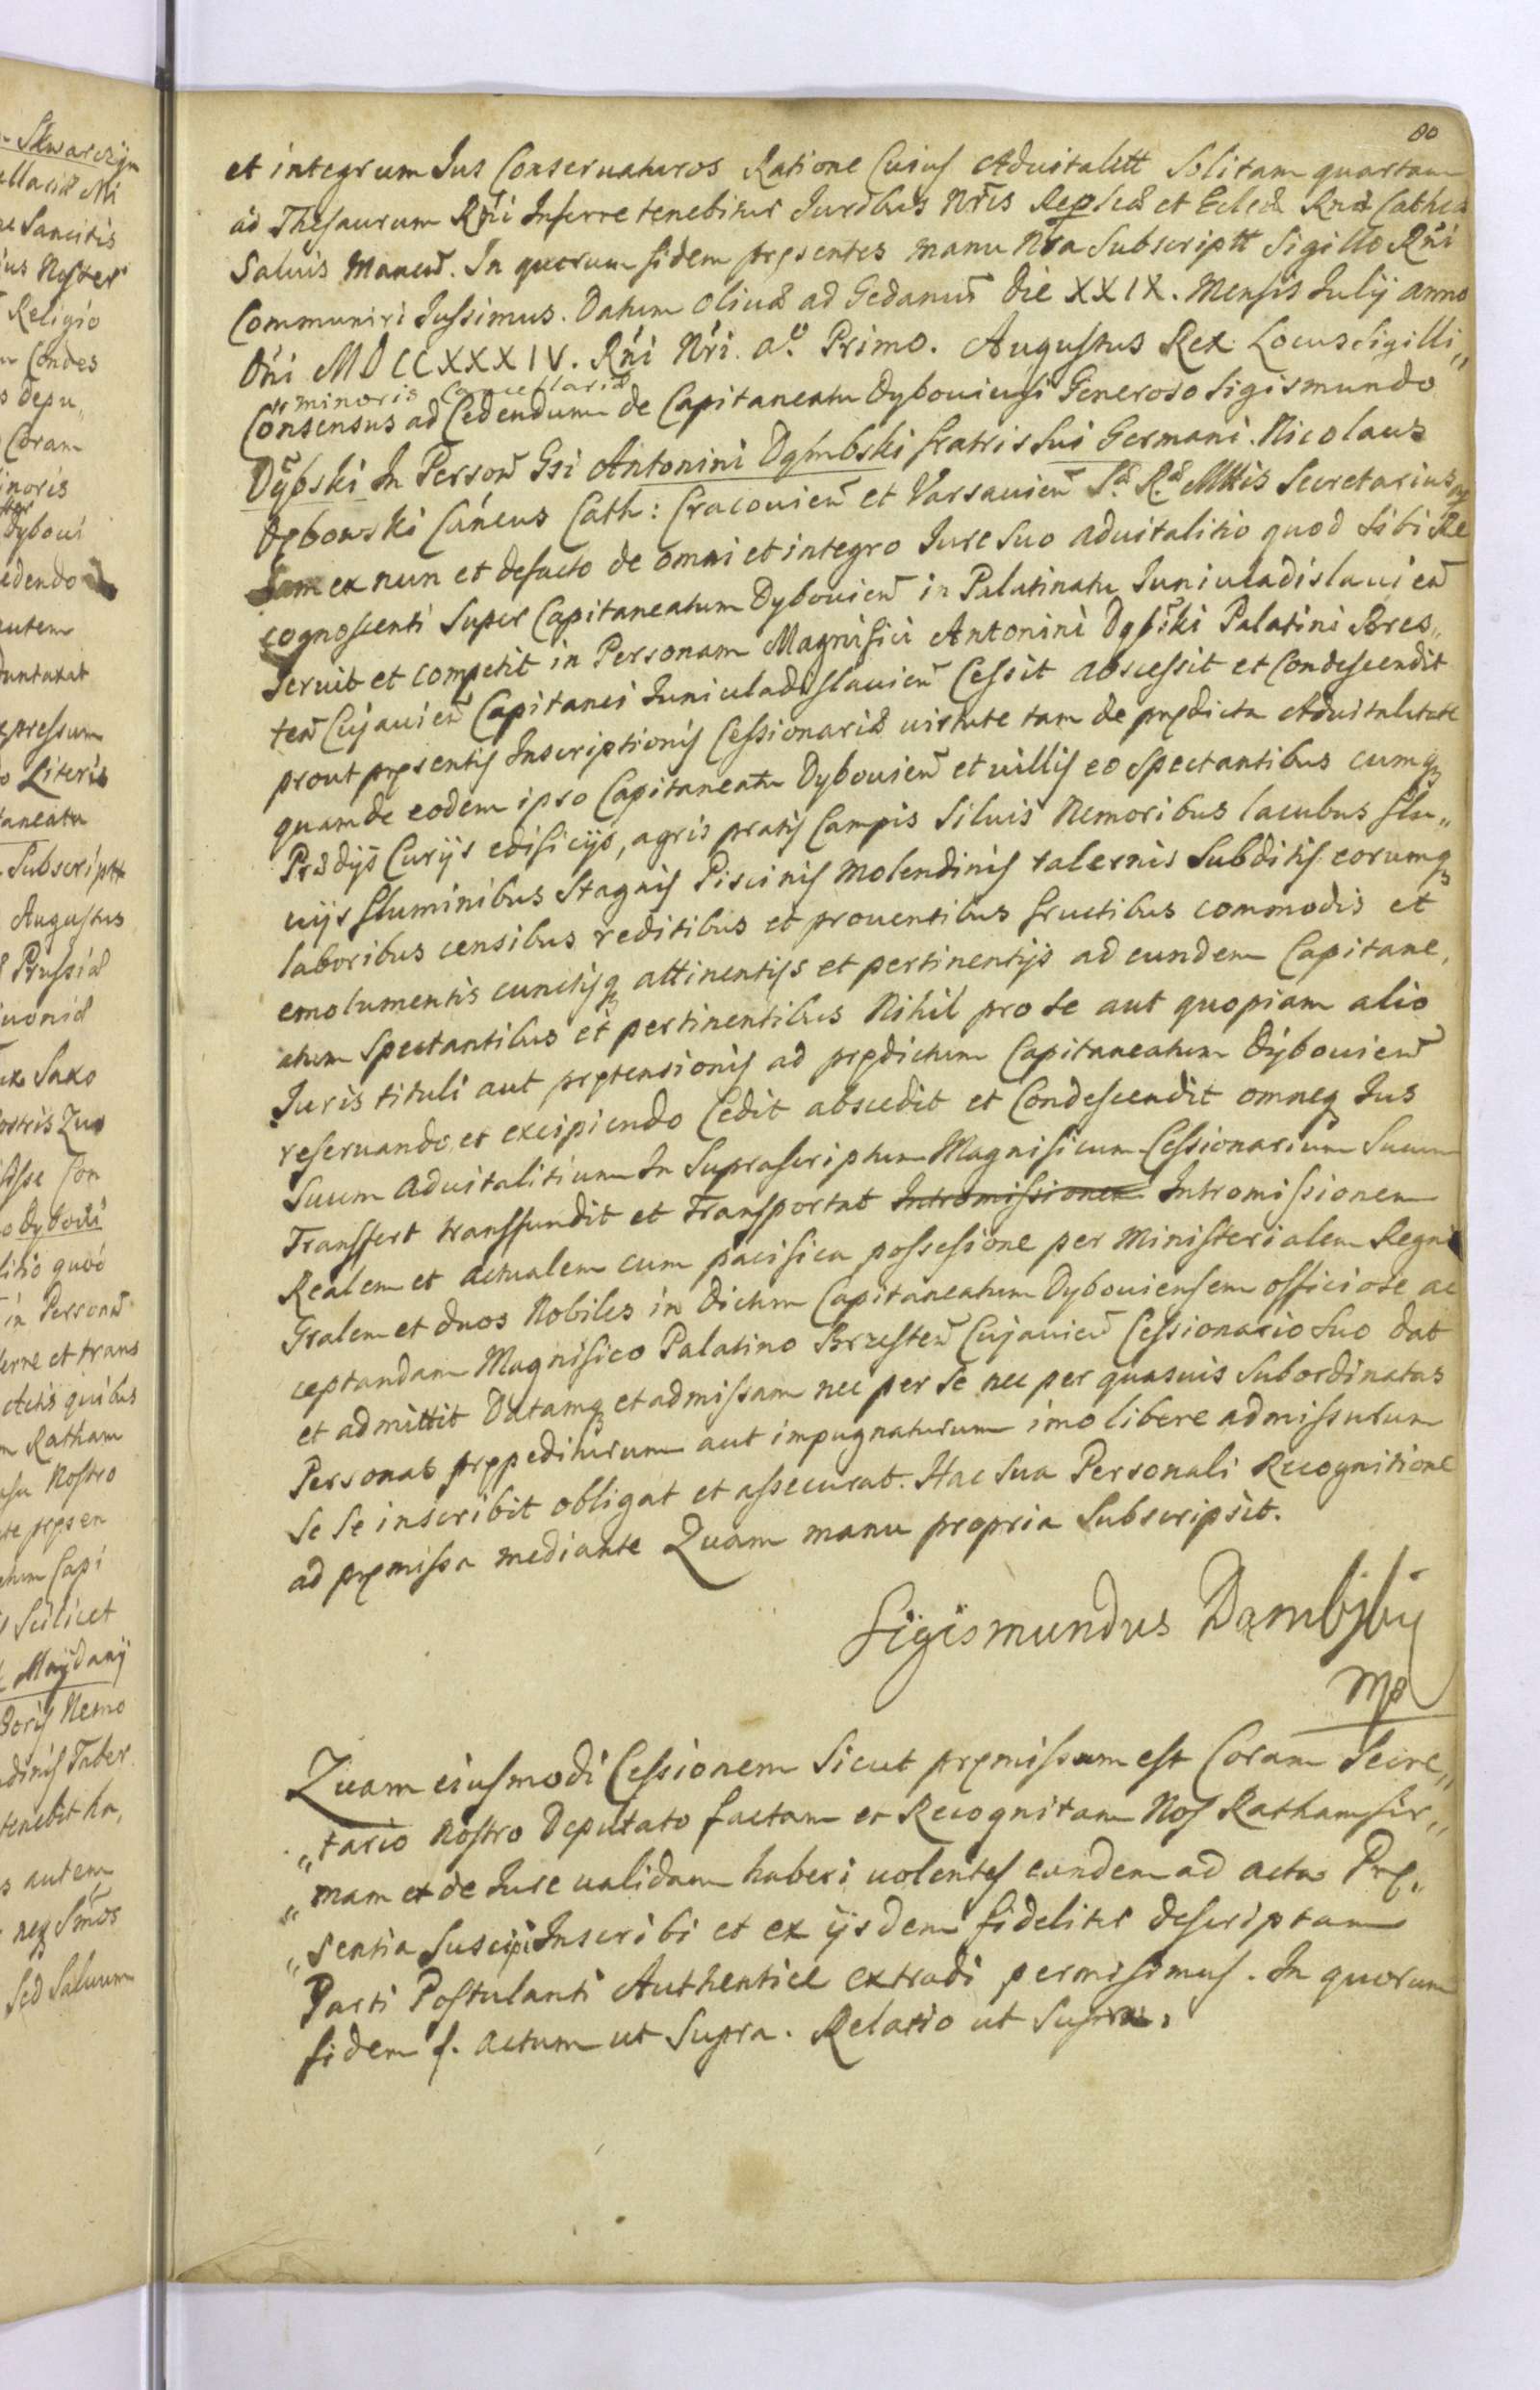 80
et integrum Jus Conservaturos Ratione Cuius Advitalitt Solitam quartam
ad Thesaurum Rñi Inferre tenebitur Juribus Nr̃is Reipleæ et Eclæ Rnæ Cathcæ
Salvis Manen̄. In quorum fidem pręsentes manu Nr̃a Subscriptt Sigillo Rñi
Communiri Jussimus. Datum Olivæ ad Gedanum̃ Die XXIX. Mensis Julÿ anno
Dñi MDCCXXXIV. Rñi Nr̃i. aº. Primo. Augustus Rex Locus Sigilli„
„minoris Cancellariæ
Consensus ad Cedendum de Capitaneatu Dybouiensi Generoso Sigismundo
Dąbski In Person̄ Gsi Antonini Dąmbski fratris Sui Germani. Nicolaus
Dębowski Cańcus Cath: Cracouien̄ et Varsauien̄ Sæ Ræ Mttis Secretarius mp
Jam ex nun et defacto de omni et integro Jure Suo advitalitio quod Sibi Re
cognoscenti Super Capitaneatum Dybouien̄ in Palatinatu Juniuladislauien̄
Seruit et competit in Personam Magnifici Antonini Dąbski Palatini Bres„
ten̄ Cujauien̄ Capitanei Juniuladislauien̄ Cessit abscessit et Condescendit
prout pręsentis Inscriptionis Cessionariæ uirtute tam de prędicta Advitalitate
quam de eodem ipso Capitaneatu Dybouien̄ et uillis eo Spectantibus cumqꝫ
Prædijs Curijs edificijs, agris pratis Campis Siluis Nemoribus lacubus flu„
uijs fluminibus Stagnis Piscinis Molendinis tabernis Subditis eorumqꝫ
laboribus censibus reditibus et prouentibus fructibus commodis et
emolumentis cunctisqꝫ attinentijs et pertinentijs ad eundem Capitane,
atum Spectantibus et pertinentibus Nihil pro Se aut quopiam alio
Juris tituli aut prętensionis ad prędictum Capitaneatum Dybouien̄
reseruando, et excipiendo Cedit abscedit et Condescendit omneqꝫ Jus
Suum advitalitium In Suprascriptum Magnificum Cessionarium Suum
Transfert transfundit et Transportat Intromissionem Intromissionem
Realem et actualem cum pacifica possessione per Ministerialem Regni
Gralem et duos Nobiles in dictum Capitaneatum Dybouiensem officiose ac
ceptandam Magnifico Palatino Brzesten̄ Cujauien̄ Cessionario Suo dat
et admittit Datamqꝫ et admissam nec per Se nec per quasuis Subordinatas
Personas pręppediturum aut impugnaturum imo libere admissurum
Se Se inscribit obligat et assecurat. Hac Sua Personali Recognitione
ad pręmissa mediante Quam manu propria Subscripsit.
Sigismundus Dąmbsky
mp
Quam eiusmodi Cessionem Sicut pręmissum est Coram Secre„
„tario Nostro Deputato factam et Recognitam Nos Ratham fir„
„mam et de Jure validam haberi uolentes eandem ad acta Prę„
„sentia Suscipi Inscribi et ex ijsdem fideliter descriptam
Parti Postulanti Authentice extradi permisimus. In quorum
fidem f. actum ut Supra. Relatio ut Supra.